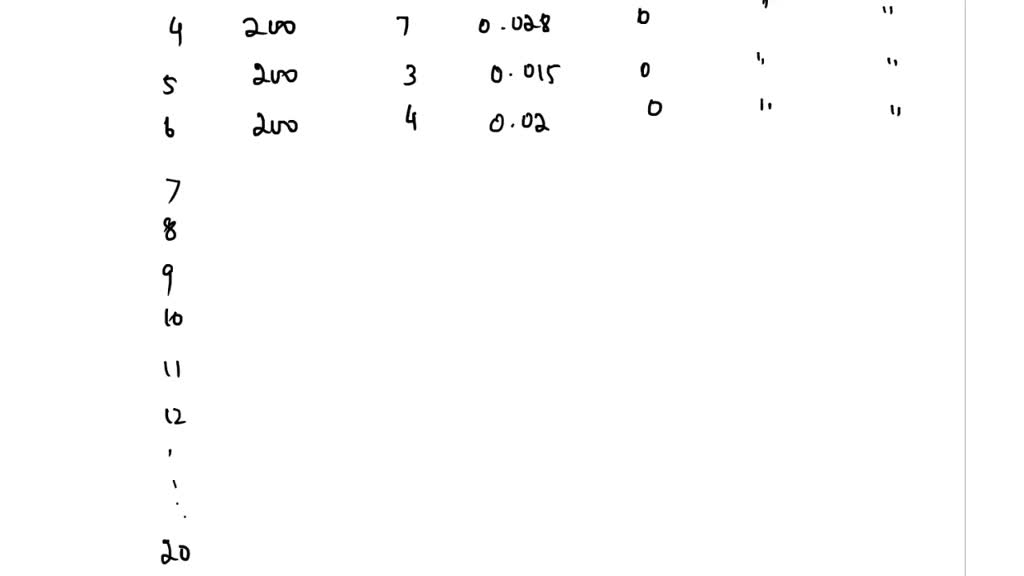 4 200 7 0.028 0 " "
5 200 3 0.015 0 " "
6 200 4 0.02 0 " "
7
8
9
10
11
12
20